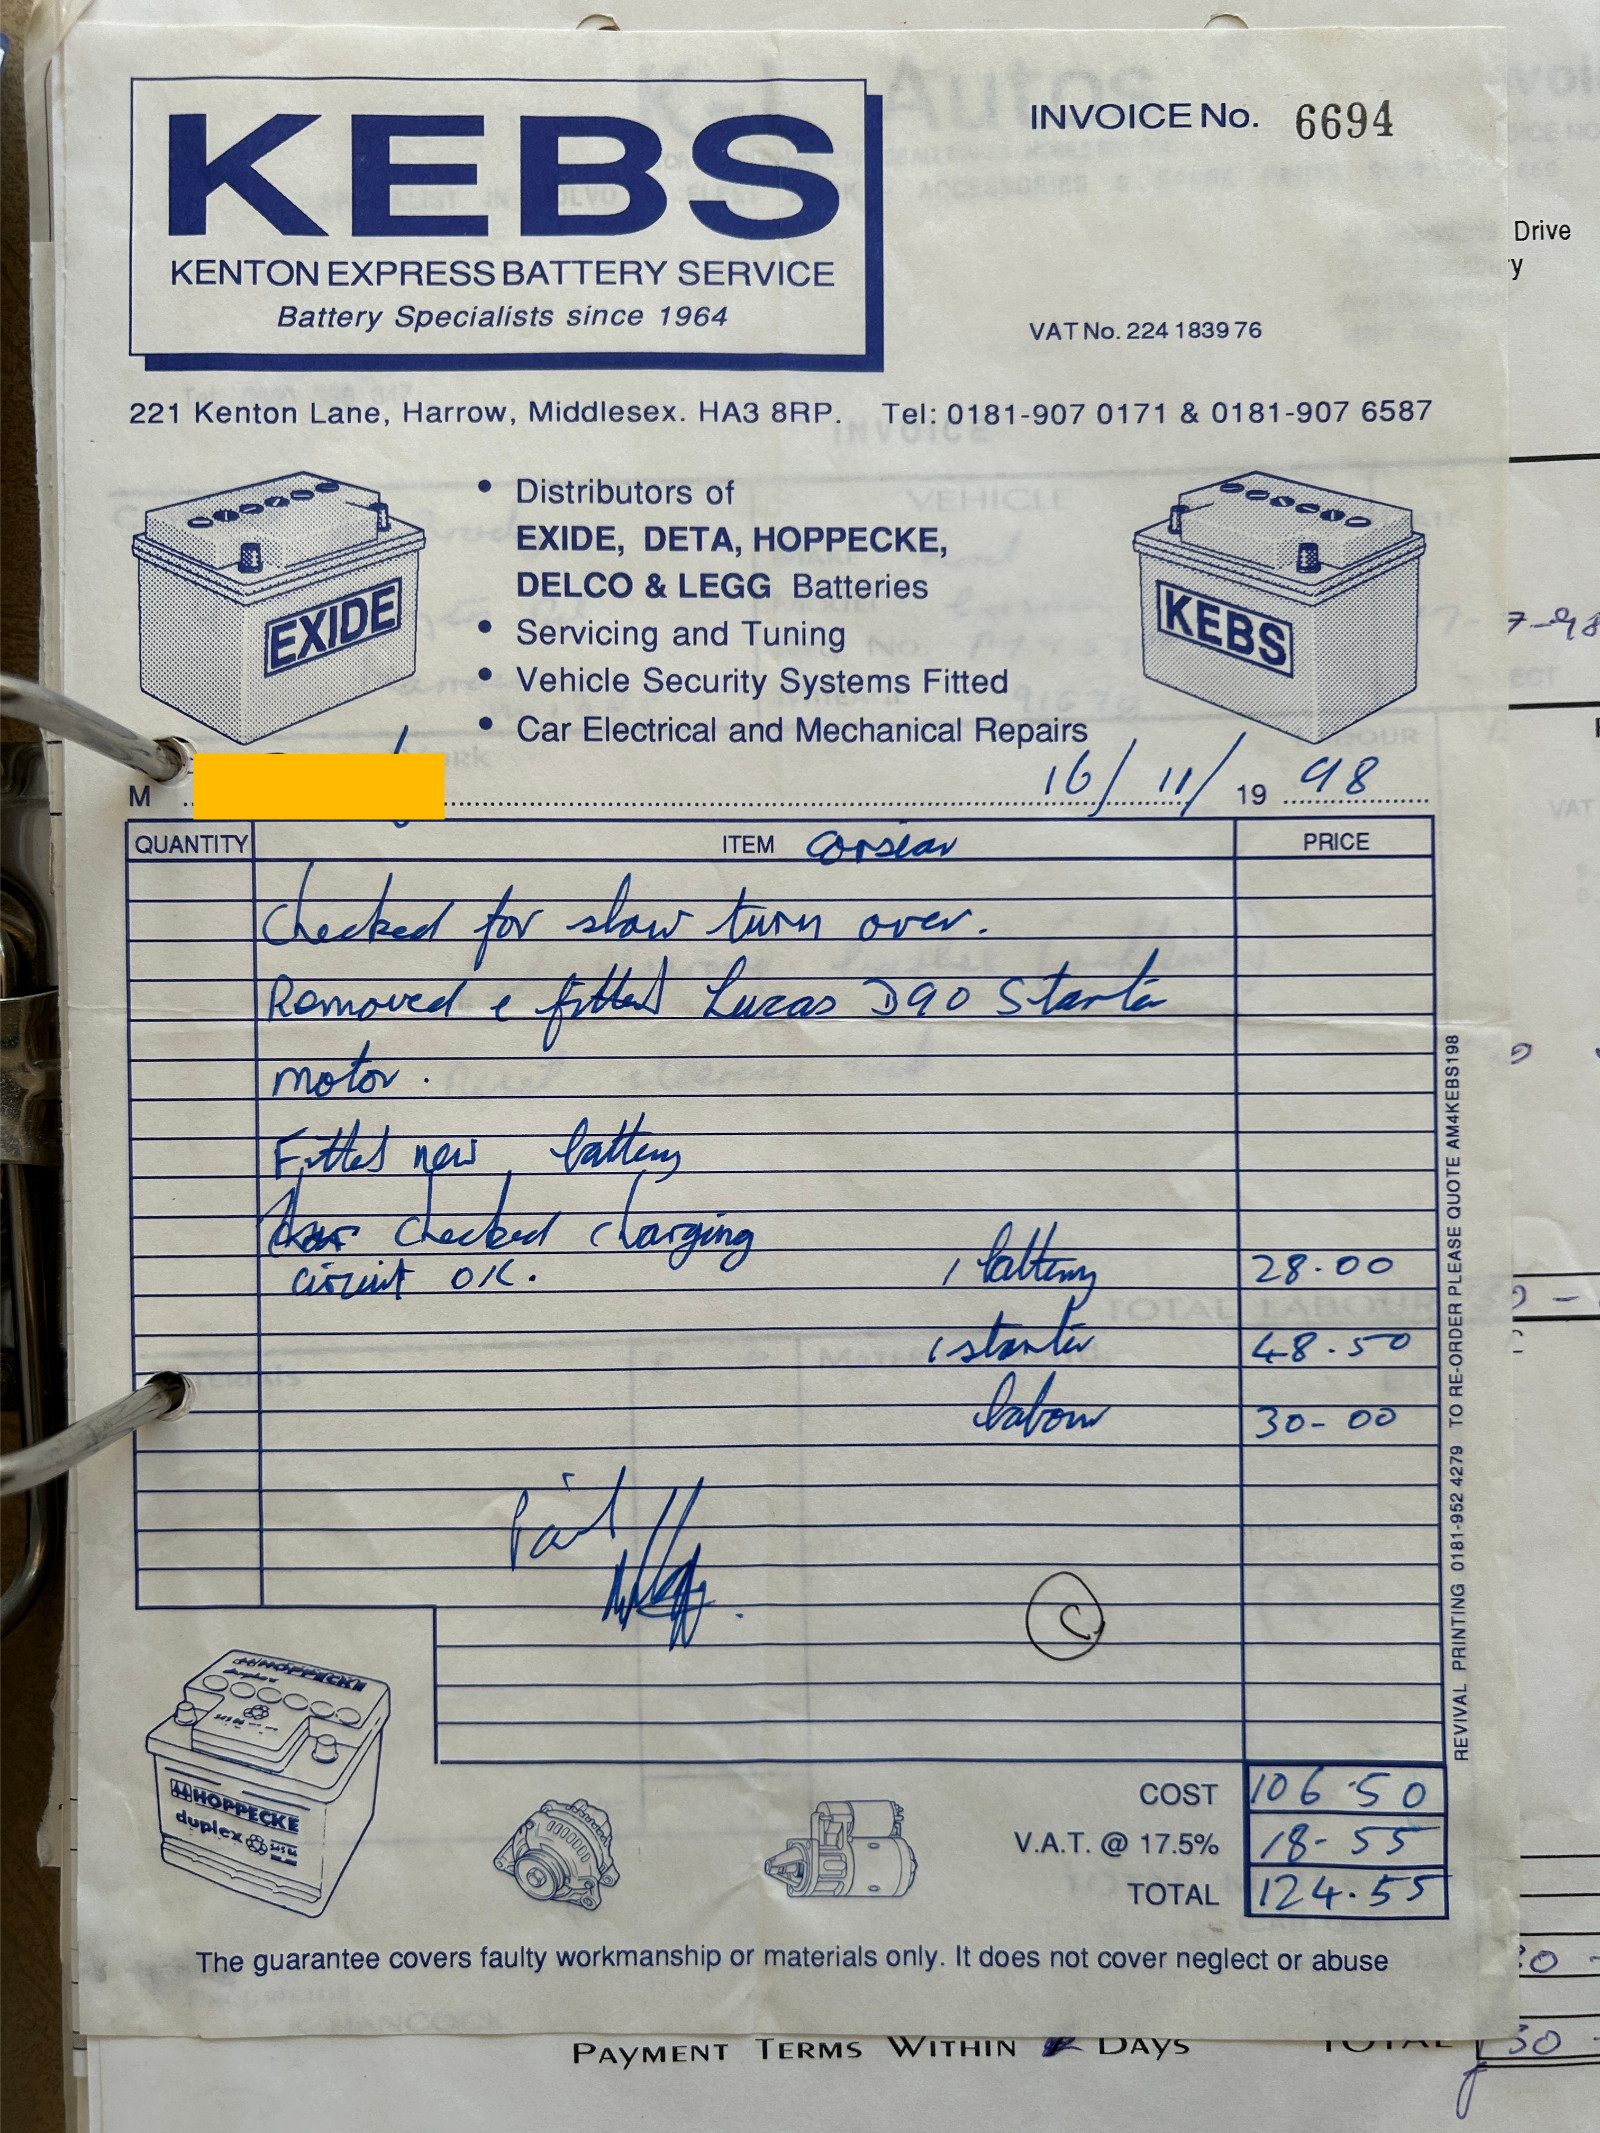 KEBS
KENTON EXPRESS BATTERY SERVICE
Battery Specialists since 1964
INVOICE No. 6694
VAT No. 224 1839 76
221 Kenton Lane, Harrow, Middlesex. HA3 8RP. Tel: 0181-907 0171 & 0181-907 6587
• Distributors of
EXIDE, DETA, HOPPECKE,
DELCO & LEGG Batteries
• Servicing and Tuning
• Vehicle Security Systems Fitted
• Car Electrical and Mechanical Repairs
EXIDE
KEBS
M 16/11/ 19 98
QUANTITY ITEM Corsair PRICE
Checked for slow turn over.
Removed & fitted Lucas D90 Starter
motor.
Fitted new battery
checked charging
circuit OK.
1 battery 28.00
1 starter 48.50
labour 30-00
Paid
C
HOPPECKE
duplex
HOPPECKE
duplex
COST 106.50
V.A.T. @ 17.5% 18-55
TOTAL 124.55
The guarantee covers faulty workmanship or materials only. It does not cover neglect or abuse
REVIVAL PRINTING 0181-952 4279 TO RE-ORDER PLEASE QUOTE AM4KEBS198
Drive
7-98
PAYMENT TERMS WITHIN DAYS TOTAL